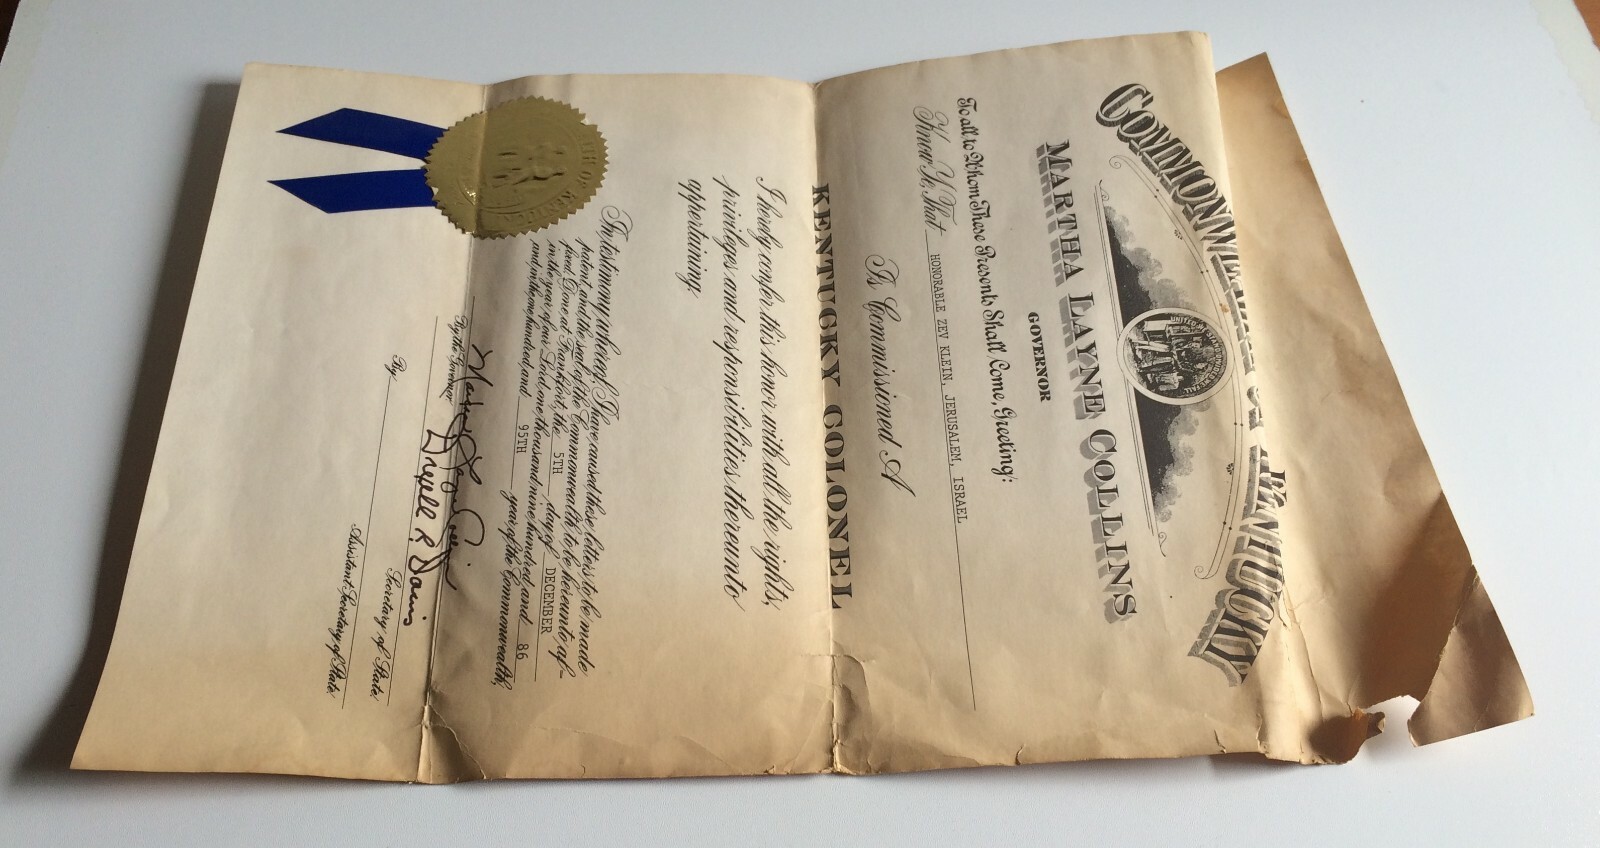 COMMONWEALTH OF KENTUCKY
MARTHA LAYNE COLLINS
GOVERNOR
To all to Whom These Presents Shall Come, Greeting:
Know Ye, That HONORABLE ZEV KLEIN, JERUSALEM, ISRAEL
Is Commissioned A
KENTUCKY COLONEL
I hereby confer this honor with all the rights,
privileges and responsibilities thereunto
appertaining.
In testimony whereof, I have caused these letters to be made
patent, and the seal of the Commonwealth to be hereunto af-
fixed. Done at Frankfort, the 5TH day of DECEMBER
in the year of our Lord one thousand nine hundred and 86
and in the one hundred and 95TH year of the Commonwealth.
Martha Layne Collins
By the Governor
Drexell R. Davis
Secretary of State.
By
Assistant Secretary of State.